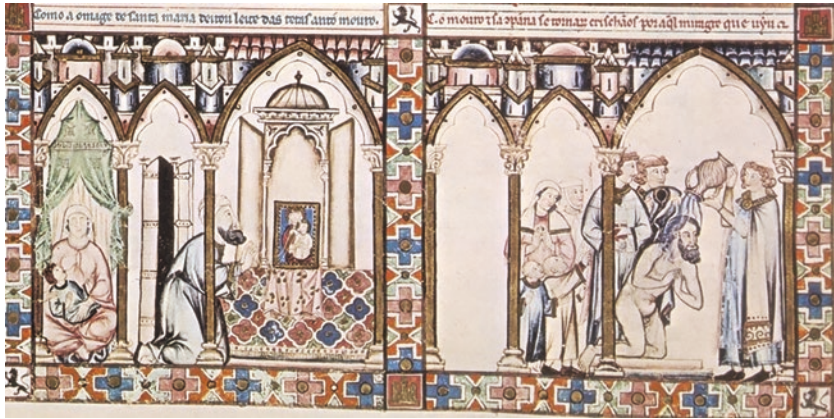 Como a omagẽ de santa maria deitou leite das tetas antó mouro.
C. o mouro τ sa cõpãna se tornarõ crischãos por aq̃l miragre que uyrõ